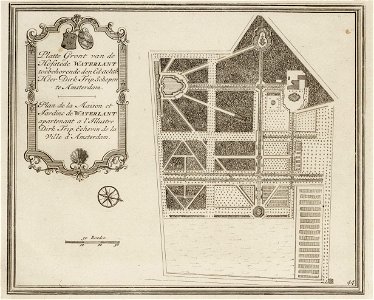 Platte Gront van de
Hofstede WATERLANT
toebehorende den Ed: achtb:
Heer Dirk Trip Schepen
te Amsterdam.
Plan de la Maison et
Jardins de WATERLANT
apartenant a l'Illustre
Dirk Trip Echevin de la
Ville d'Amsterdam.
50 Roeden
44